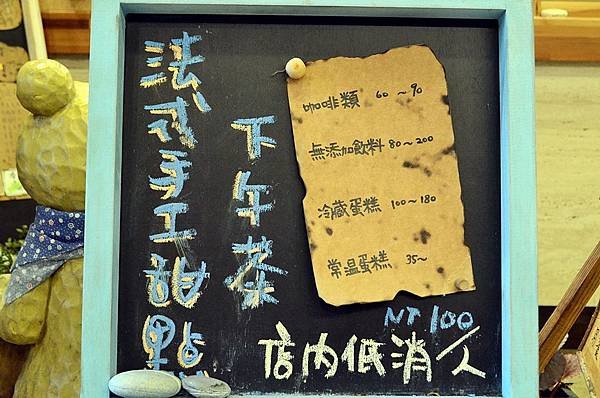 法式手工甜點
下午茶
咖啡類 60～90
無添加飲料 80～200
冷藏蛋糕 100～180
常温蛋糕 35～
NT 100
店内低消/人